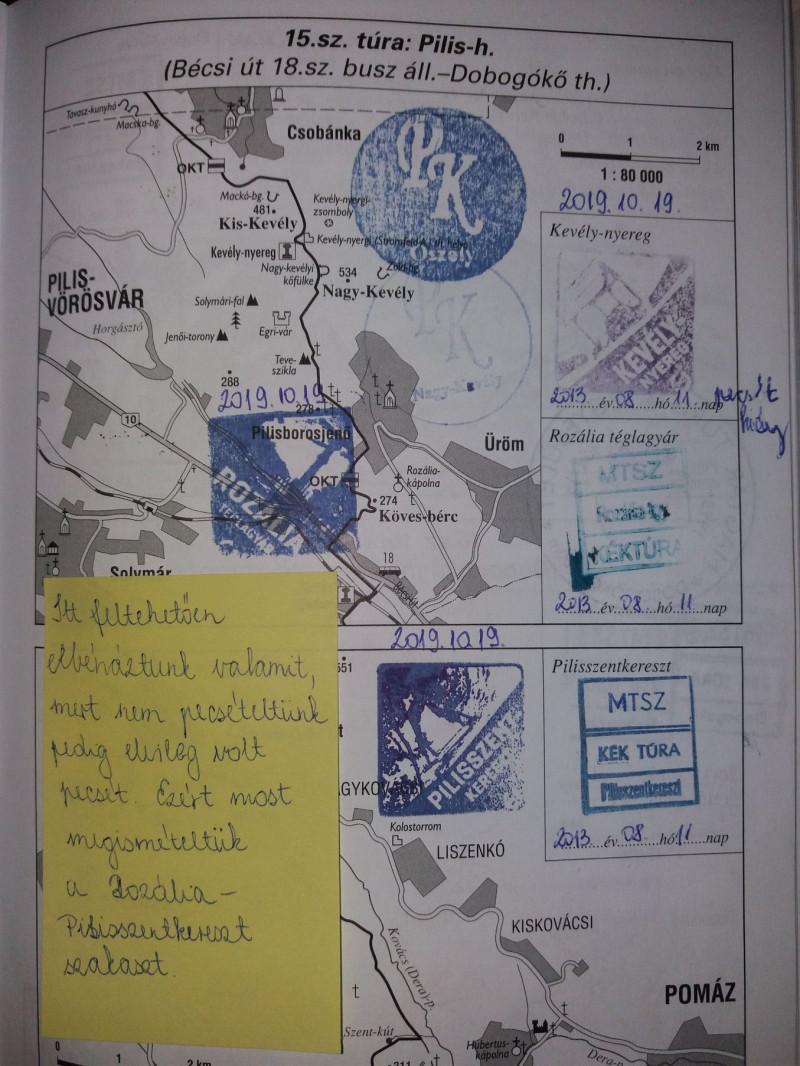 15.sz. túra: Pilis-h.
(Bécsi út 18.sz. busz áll.–Dobogókő th.)
Tavasz-kunyhó
Macska-bg.
Csobánka
OKT
PK
Oszoly
0 1 2 km
1 : 80 000
2019.10.19.
Mackó-bg.
481
Kis-Kevély
Kevély-nyergi-
zsomboly
Kevély-nyereg
Kevély-nyereg
Nagy-kevélyi
kőfülke
534
Nagy-Kevély
PILIS-
VÖRÖSVÁR
Horgásztó
Solymári-fal
Jenői-torony
Egri-vár
Teve-
szikla
PK
Nagy-Kevély
KEVÉLY
NYEREG
2013 év 08 hó 11 nap
pecsét
288
2019.10.19
278
10
Pilisborosjenő
ROZÁLIA
TÉGLAGYÁR
OKT
Rozália-
kápolna
Üröm
274
Köves-bérc
18
Bécsi út
Solymár
Rozália téglagyár
MTSZ
KÉKTÚRA
2013 év 08 hó 11 nap
2019.10.19.
Itt feltehetően
elbénáztunk valamit,
mert nem pecsételtünk
pedig elvileg volt
pecsét. Ezért most
megismételtük
a Rozália-
Pilisszentkereszt
szakaszt.
551
PILISSZENT
KERESZT
Pilisszentkereszt
MTSZ
KÉK TÚRA
Pilisszentkereszt
2013 év 08 hó 11 nap
Kolostorrom
LISZENKÓ
KISKOVÁCSI
Kovács (Dera)-p.
POMÁZ
Szent-kút
Hubertus-
kápolna
Dera-p.
0 1 2 km